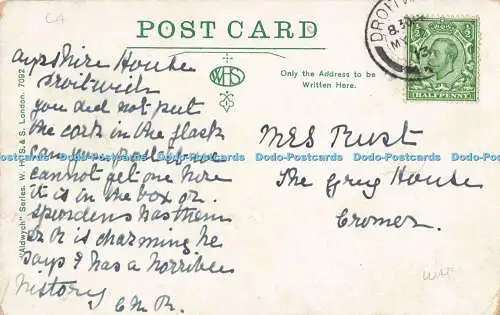 CA
POST CARD
DROITWI
8.30
13
HALFPENNY
WHS
Only the Address to be
Written Here.
"Aldwych" Series. W. H. S. & S. London. 7092
Ayrshire House
Droitwich
you did not put
the cork in the flask
can you post
cannot get one here
it is in the box or
Spurdens has them
Dr R is charming he
says I has a horrible
history
C M R.
Mrs Trust
The Grey House
Cromer.
Dodo-Postcards Dodo-Postcards Dodo-Postcards Dodo-Postcards Dodo-Postcards Dodo-Postcards